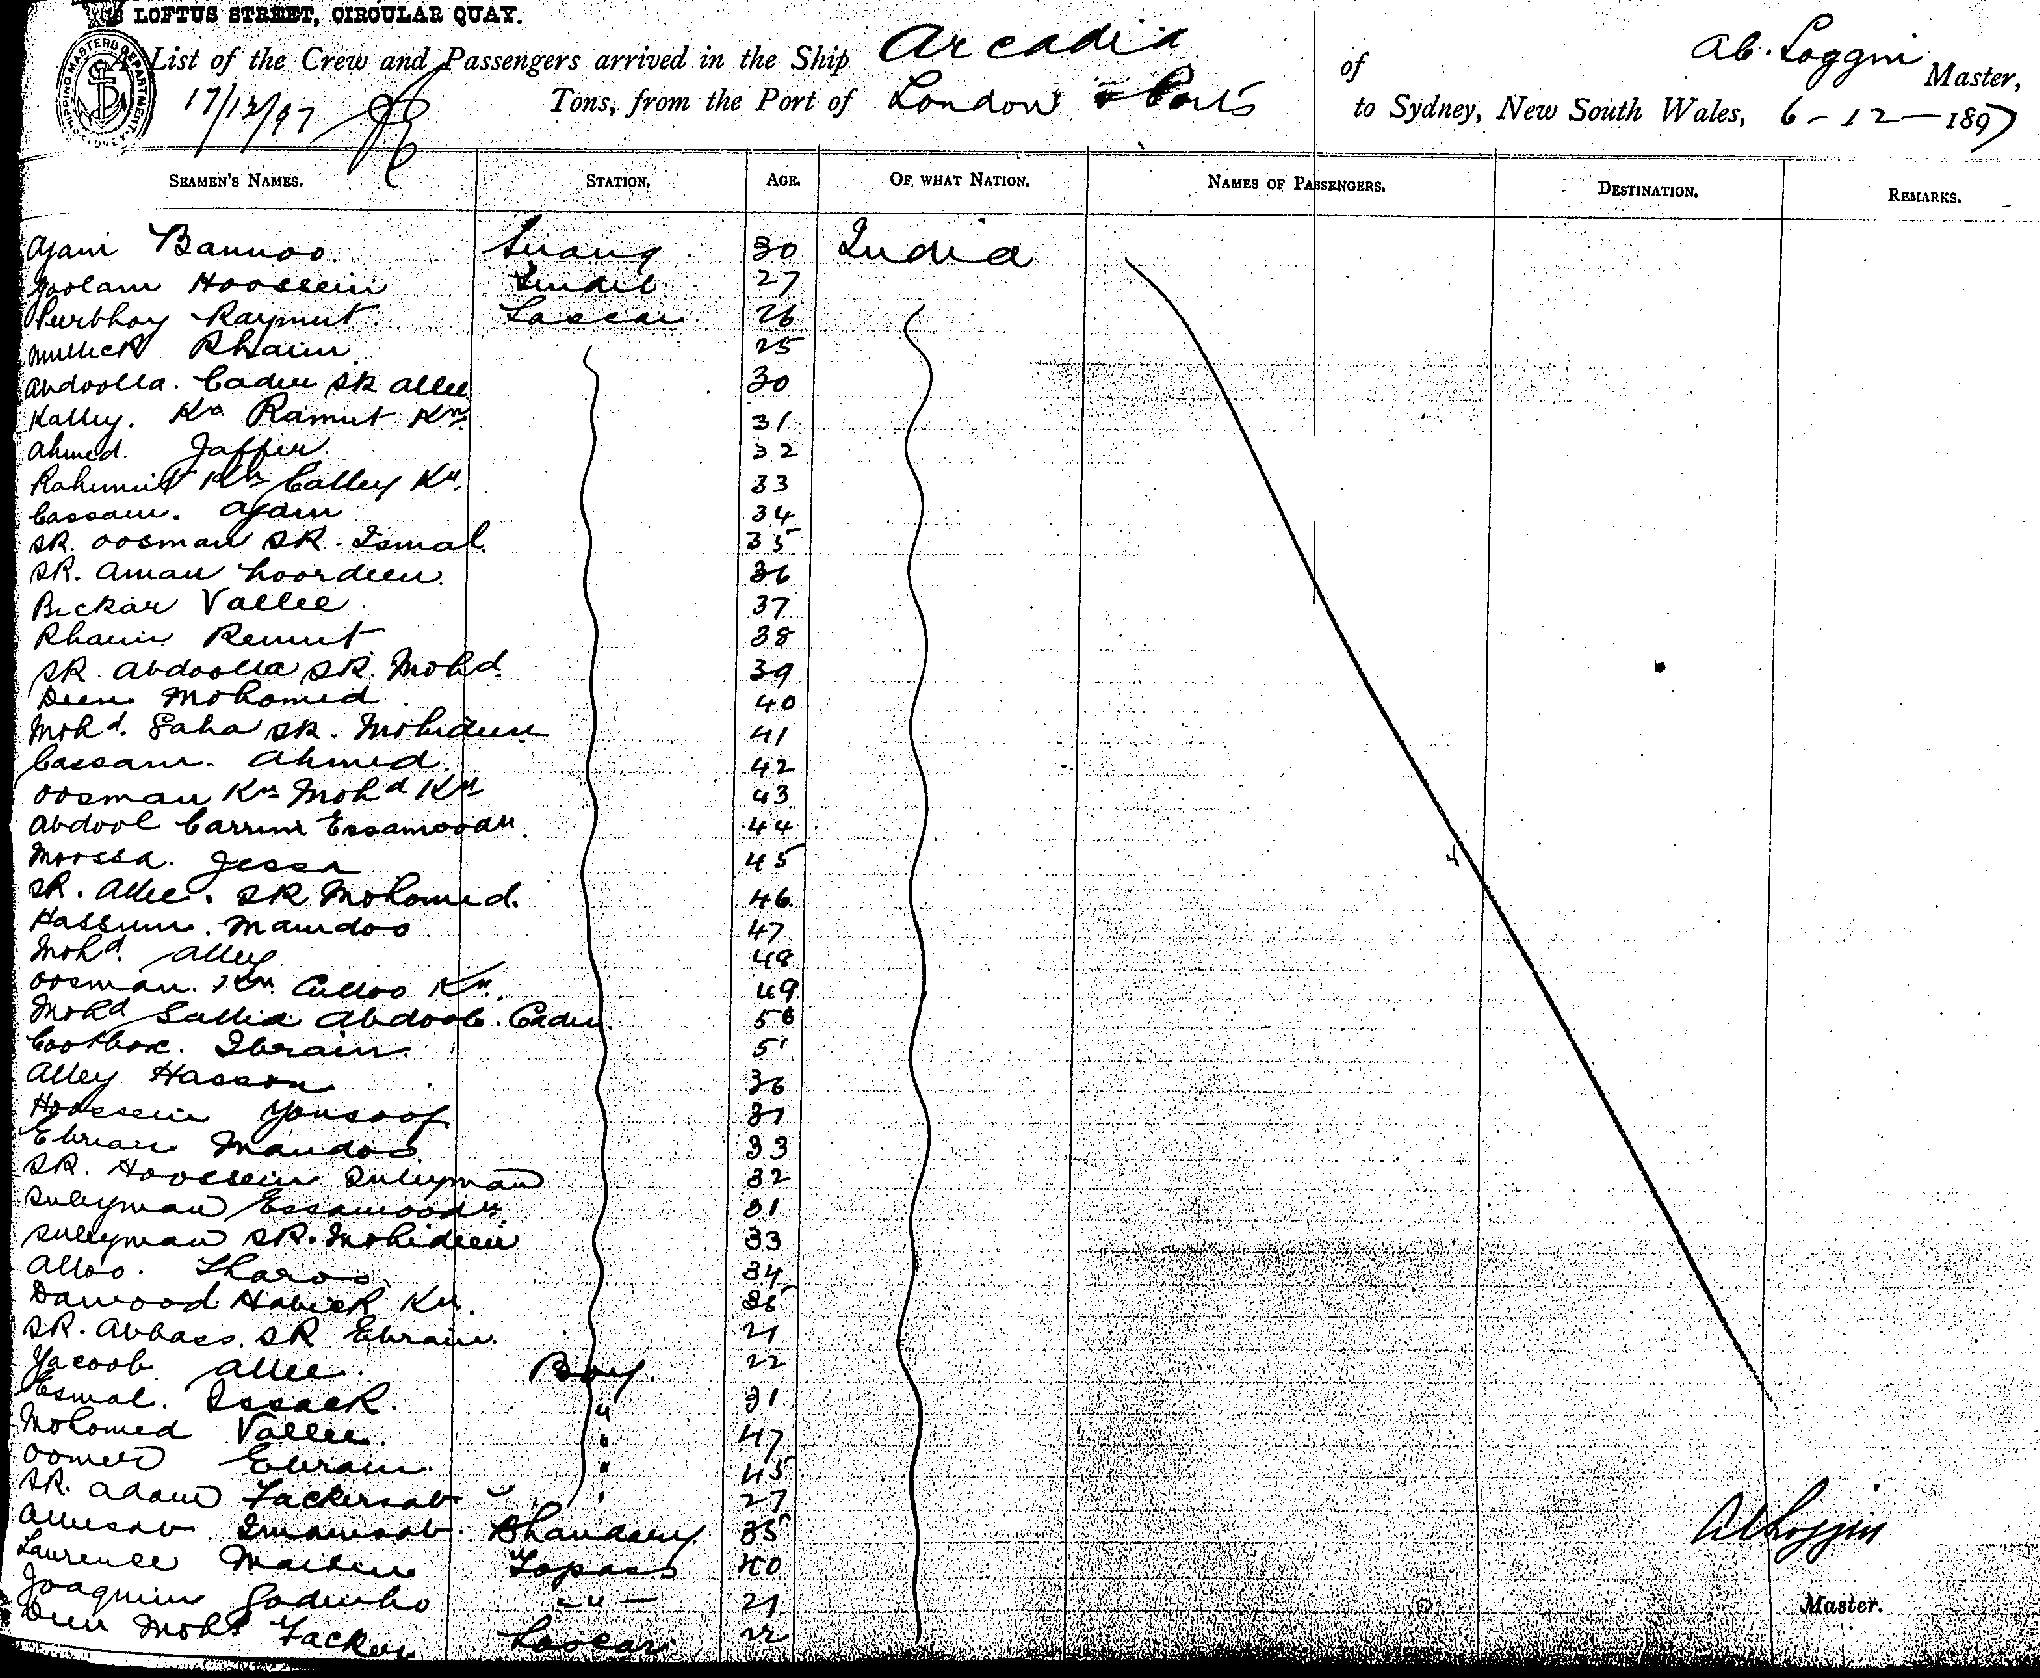 LOFTUS STREET, CIRCULAR QUAY.
List of the Crew and Passengers arrived in the Ship Arcadia of Ab. Loggin Master,
17/12/97 Tons, from the Port of London & Ports to Sydney, New South Wales, 6-12-1897
SEAMEN'S NAMES. STATION. AGE. OF WHAT NATION. NAMES OF PASSENGERS. DESTINATION. REMARKS.
Ajam Bannoo Serang 30 India
Goolam Hoossein Tindel 27
Purbhoy Raymut Lascar 26
Mullick Rhaim 25
Abdoolla. Cader SK Allee 30
Kalley. Kn Ramut Kn 31
Ahmed. Jaffer 32
Kn Calley Kn. 33
Cassam. Ajam 34
SK. Oosman SK. Ismal 35
SK. Aman Noordeen 36
Beckar Vallee 37
Rhaim Remut 38
SK. Abdoolla SK. Mohd. 39
Deen Mohomed 40
Mohd. Saha SK. Mohideen 41
Cassam. Ahmed 42
Oosman Kn Mohd Kn 43
Abdool Carrim Essamoodn. 44
Moossa. Jessa 45
SK. Allee. SK Mohomed. 46
Hassum. Mamdoo 47
Mohd. Alley 48
Oosman. Kn. Culloo Kn. 49
Mohd Sallia Abdool. Cader 50
Ibraim 51
Alley Hasson 36
Hoossein Yousoof 37
Ebram Mamdoo 33
SK. Hoossein Suleyman 32
Suleyman Essamoodn 31
Suleyman SK. Mohideen 33
Alloo. 34
Dawood Kn. 35
SK. Abbass. SK Ebraim. 21
Yacoob Allee. Boy. 22
Esmal. Issack. " 31
Mohomed Vallee. " 47
Oomer Ebraim. " 45
SK. Adam Tackersab " 27
Alleesab Imamsab. Bhandary. 35
Laurence Martin Topass 40
Joaquim Godinho -"- 21
Deen Mohd Tacker Lascar. 22
Ab Loggin
Master.